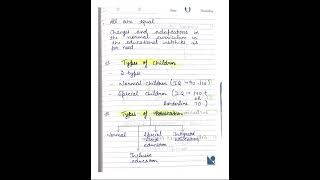 - All are equal
Changes and adaptations in
the normal curriculum in
the educational institute as
for need.
Types of Children
2 types
- Normal children (IQ - 90 - 110)
- Special children (IQ - 110 ↑
or
Borderline 70)
Types of Education
Normal Special Integrated
education education
Inclusive
education